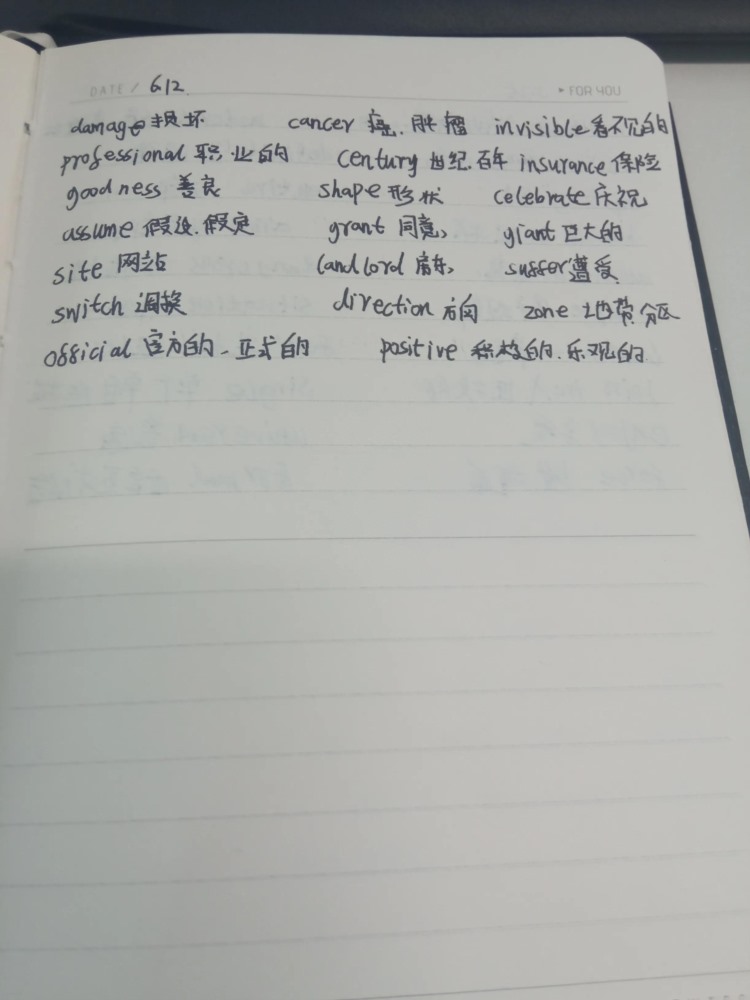 DATE / 612
▸ FOR YOU
damage 损坏 cancer 癌. 肿瘤 invisible 看不见的
professional 职业的 century 世纪. 百年 insurance 保险
goodness 善良 shape 形状 celebrate 庆祝
assume 假设. 假定 grant 同意 giant 巨大的
site 网站 landlord 房东 suffer 遭受
switch 调换 direction 方向 zone 地带 分区
official 官方的. 正式的 positive 积极的. 乐观的